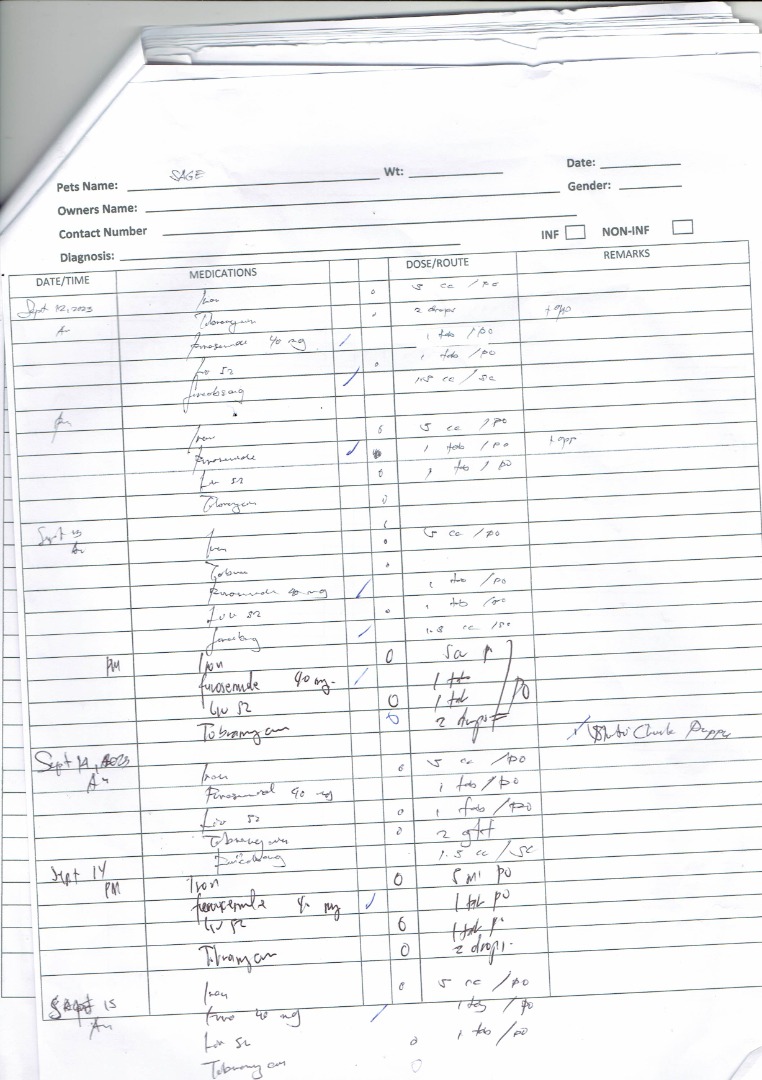 Pets Name: SAGE Wt: Date:
Owners Name: Gender:
Contact Number
INF NON-INF
Diagnosis:
DATE/TIME MEDICATIONS DOSE/ROUTE REMARKS
Iron 5 cc / po
Sept 12, 2023 Tobramycin 2 drops
Am Furosemide 40 mg 1 tab / po
Liv 52 1 tab / po
1.5 cc / sc
Pm
Iron 5 cc / po
Furosemide 1 tab / po
Liv 52 1 tab / po
Tobramycin
Sept 13
Am Iron 5 cc / po
Tobra
Furosemide 40 mg 1 tab / po
Liv 52 1 tab / po
1.5 cc / sc
PM Iron 5cc
furosemide 40 mg. 1 tab
Liv 52 1 tab PO
Tobramycin 2 drops
Sept 14, 2023
Am Iron 5 cc / po
Furosemid 40 mg 1 tab / po
Liv 52 1 tab / po
Tobramycin 2 gtt
1.5 cc / sc
Sept 14
PM Iron 5 ml po
furosemide 40 mg 1 tab po
Liv 52 1 tab p.
Tobramycin 2 drops.
Sept 15 Iron 5 cc / po
Am furo 40 mg 1 tab / po
Liv 52 1 tab / po
Tobramycin